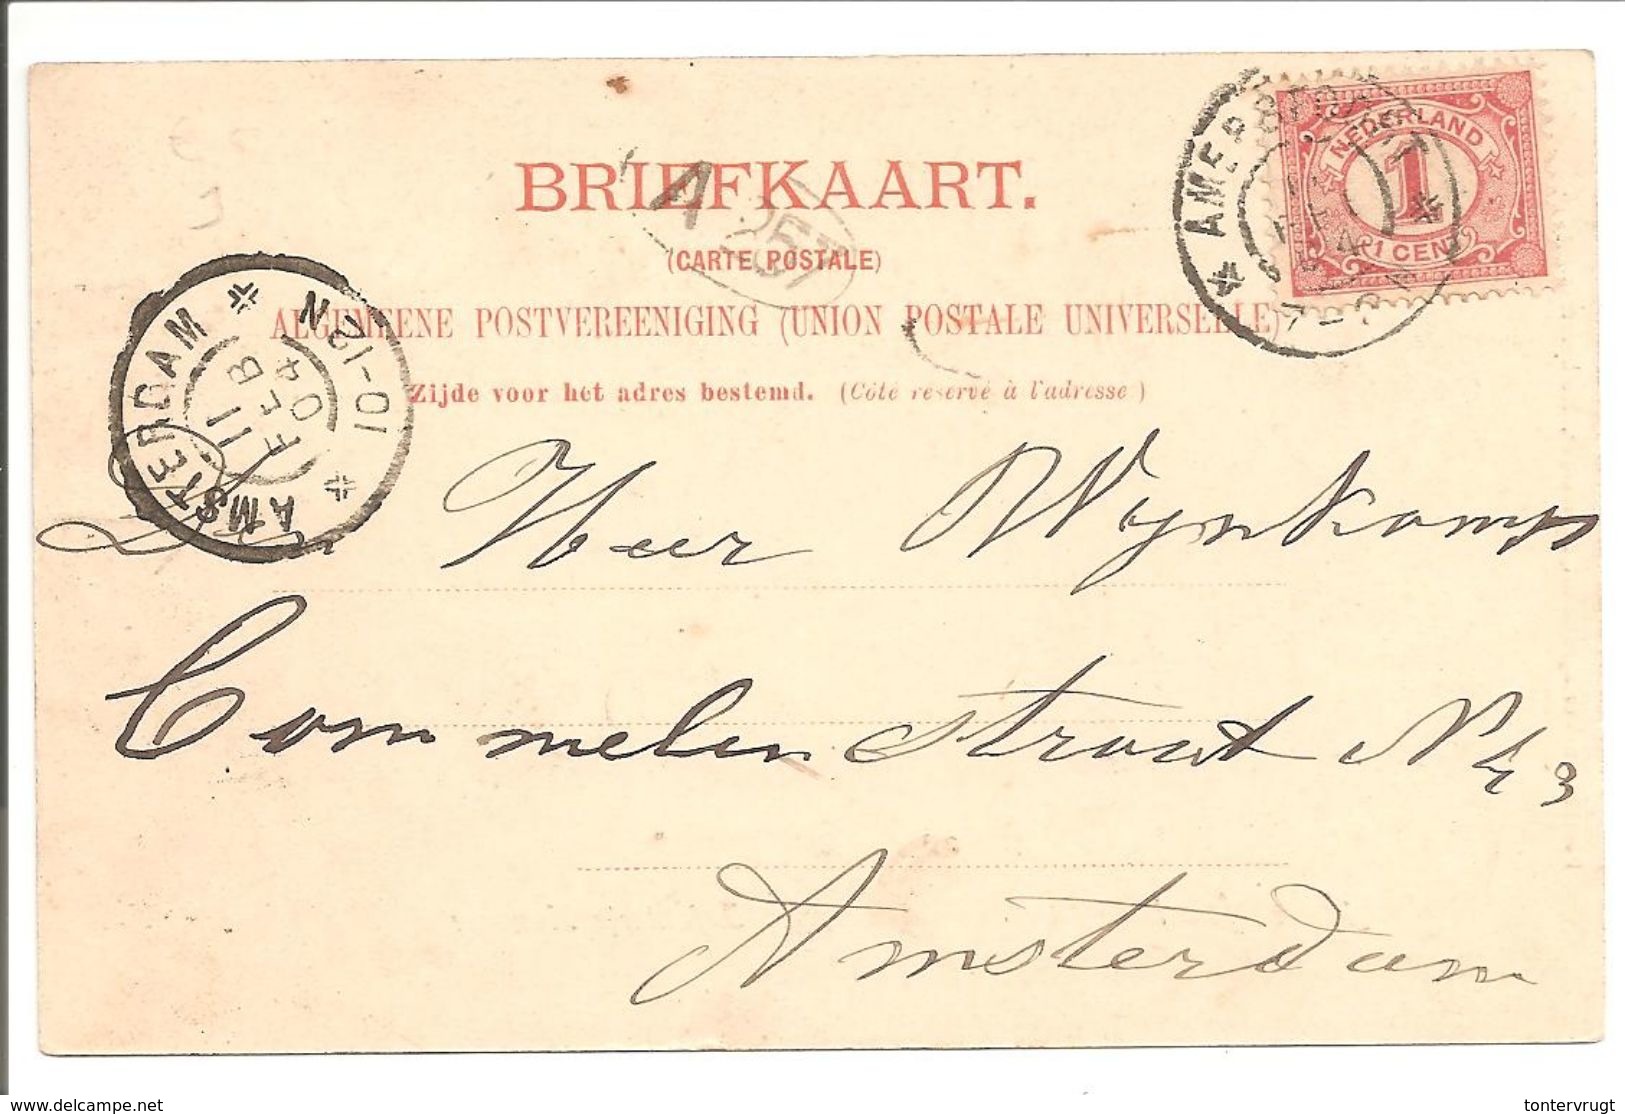 BRIEFKAART.
(CARTE POSTALE)
ALGEMEENE POSTVEREENIGING (UNION POSTALE UNIVERSELLE)
Zijde voor het adres bestemd. (Côté réservé à l'adresse)
NEDERLAND
1
1 CENT
AMERSFOORT
AMSTERDAM
10-12N
11 FEB 04
Heer Wynkamp
Commelin straat N 43
Amsterdam
www.delcampe.net
tontervrugt